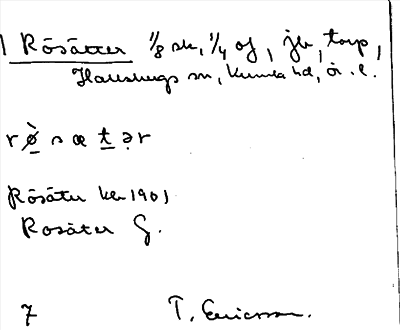 Rösätter 1/8 sk, 1/4 of, jb, torp,
Hallsbergs sn, Kumla hd, ör. l.
rø̀sætər
Rösäter ke 1901
Rosäter G.
7 T. Ericsson.